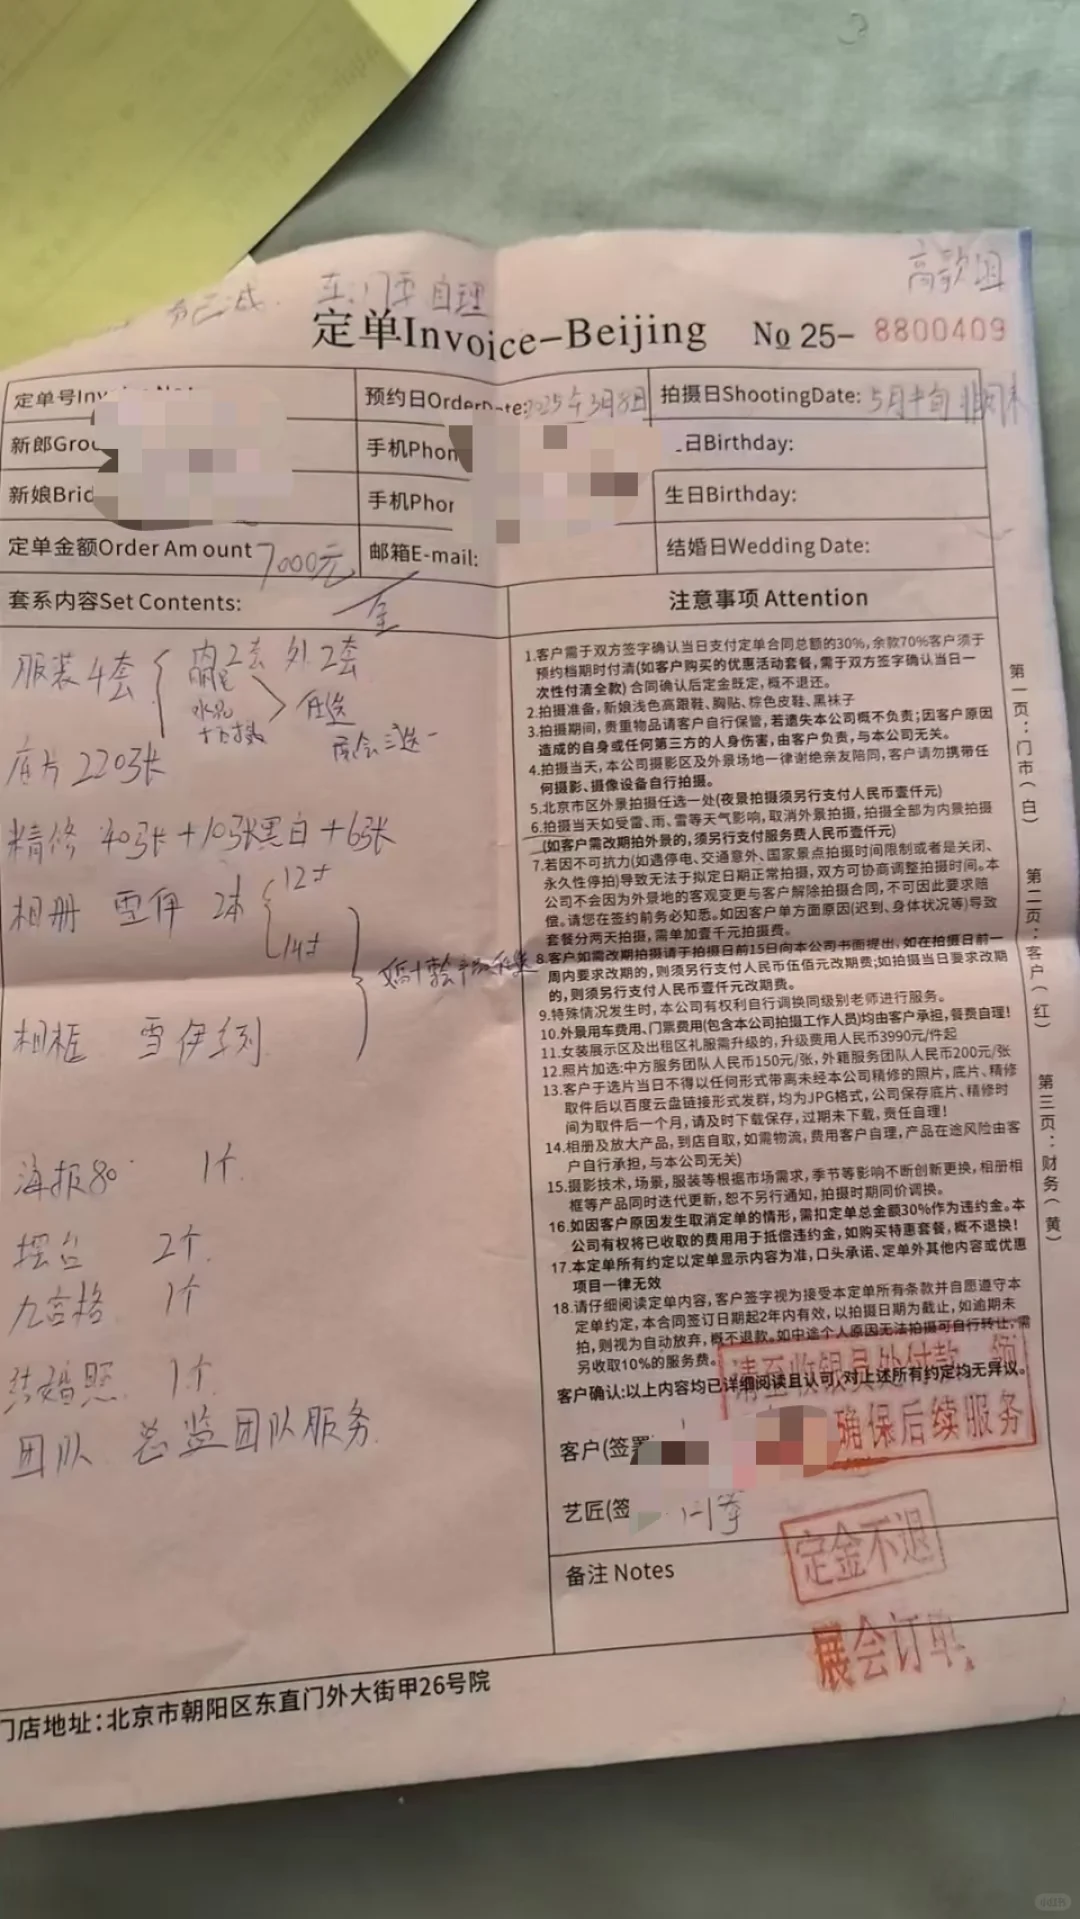 车门票自理
高歌组
定单Invoice-Beijing No 25- 8800409
定单号Invoice No
预约日OrderDate:2025年3月8日
拍摄日ShootingDate:5月中旬 非周末
新郎Groo
手机Phon
日Birthday:
新娘Brid
手机Phon
生日Birthday:
定单金额Order Am ount 7000元
邮箱E-mail:
结婚日Wedding Date:
套系内容Set Contents:
全
服装4套 内2套 外2套
水晶
任选
展会三选一
底片220张
精修 40张+10张黑白+6张
相册 雪伊 2本 12寸
14寸
相框 雪伊系列
海报80 1个.
摆台 2个.
九宫格 1个
结婚照. 1个.
团队 总监团队服务.
注意事项 Attention
1.客户需于双方签字确认当日支付定单合同总额的30%,余款70%客户须于
预约档期时付清(如客户购买的优惠活动套餐,需于双方签字确认当日一
次性付清全款)合同确认后定金既定,概不退还。
2.拍摄准备,新娘浅色高跟鞋、胸贴、棕色皮鞋、黑袜子
3.拍摄期间,贵重物品请客户自行保管,若遗失本公司概不负责;因客户原因
造成的自身或任何第三方的人身伤害,由客户负责,与本公司无关。
4.拍摄当天,本公司摄影区及外景场地一律谢绝亲友陪同,客户请勿携带任
何摄影、摄像设备自行拍摄。
5.北京市区外景拍摄任选一处(夜景拍摄须另行支付人民币壹仟元)
6.拍摄当天如受雷、雨、雪等天气影响,取消外景拍摄,拍摄全部为内景拍摄
(如客户需改期拍外景的,须另行支付服务费人民币壹仟元)
7.若因不可抗力(如遇停电、交通意外、国家景点拍摄时间限制或者是关闭、
永久性停拍)导致无法于拟定日期正常拍摄,双方可协商调整拍摄时间。本
公司不会因为外景地的客观变更与客户解除拍摄合同,不可因此要求赔
偿。请您在签约前务必知悉。如因客户单方面原因(迟到、身体状况等)导致
套餐分两天拍摄,需单加壹千元拍摄费。
8.客户如需改期拍摄请于拍摄日前15日向本公司书面提出,如在拍摄日前一
周内要求改期的,则须另行支付人民币伍佰元改期费;如拍摄当日要求改期
的,则须另行支付人民币壹仟元改期费。
9.特殊情况发生时,本公司有权利自行调换同级别老师进行服务。
10.外景用车费用、门票费用(包含本公司拍摄工作人员)均由客户承担,餐费自理!
11.女装展示区及出租区礼服需升级的,升级费用人民币3990元/件起
12.照片加选:中方服务团队人民币150元/张,外籍服务团队人民币200元/张
13.客户于选片当日不得以任何形式带离未经本公司精修的照片,底片、精修
取件后以百度云盘链接形式发群,均为JPG格式,公司保存底片、精修时
间为取件后一个月,请及时下载保存,过期未下载,责任自理!
14.相册及放大产品,到店自取,如需物流,费用客户自理,产品在途风险由客
户自行承担,与本公司无关)
15.摄影技术,场景,服装等根据市场需求,季节等影响不断创新更换,相册相
框等产品同时迭代更新,恕不另行通知,拍摄时期同价调换。
16.如因客户原因发生取消定单的情形,需扣定单总金额30%作为违约金。本
公司有权将已收取的费用用于抵偿违约金,如购买特惠套餐,概不退换!
17.本定单所有约定以定单显示内容为准,口头承诺、定单外其他内容或优惠
项目一律无效
18.请仔细阅读定单内容,客户签字视为接受本定单所有条款并自愿遵守本
定单约定,本合同签订日期起2年内有效,以拍摄日期为截止,如逾期未
拍,则视为自动放弃,概不退款。如中途个人原因无法拍摄可自行转让,需
另收取10%的服务费。
客户确认:以上内容均已详细阅读且认可,对上述所有约定均无异议。
请至收银员处付款
确保后续服务
客户(签署
艺匠(签
定金不退
备注 Notes
展会订单
门店地址:北京市朝阳区东直门外大街甲26号院
第一页:门市(白)
第二页:客户(红)
第三页:财务(黄)